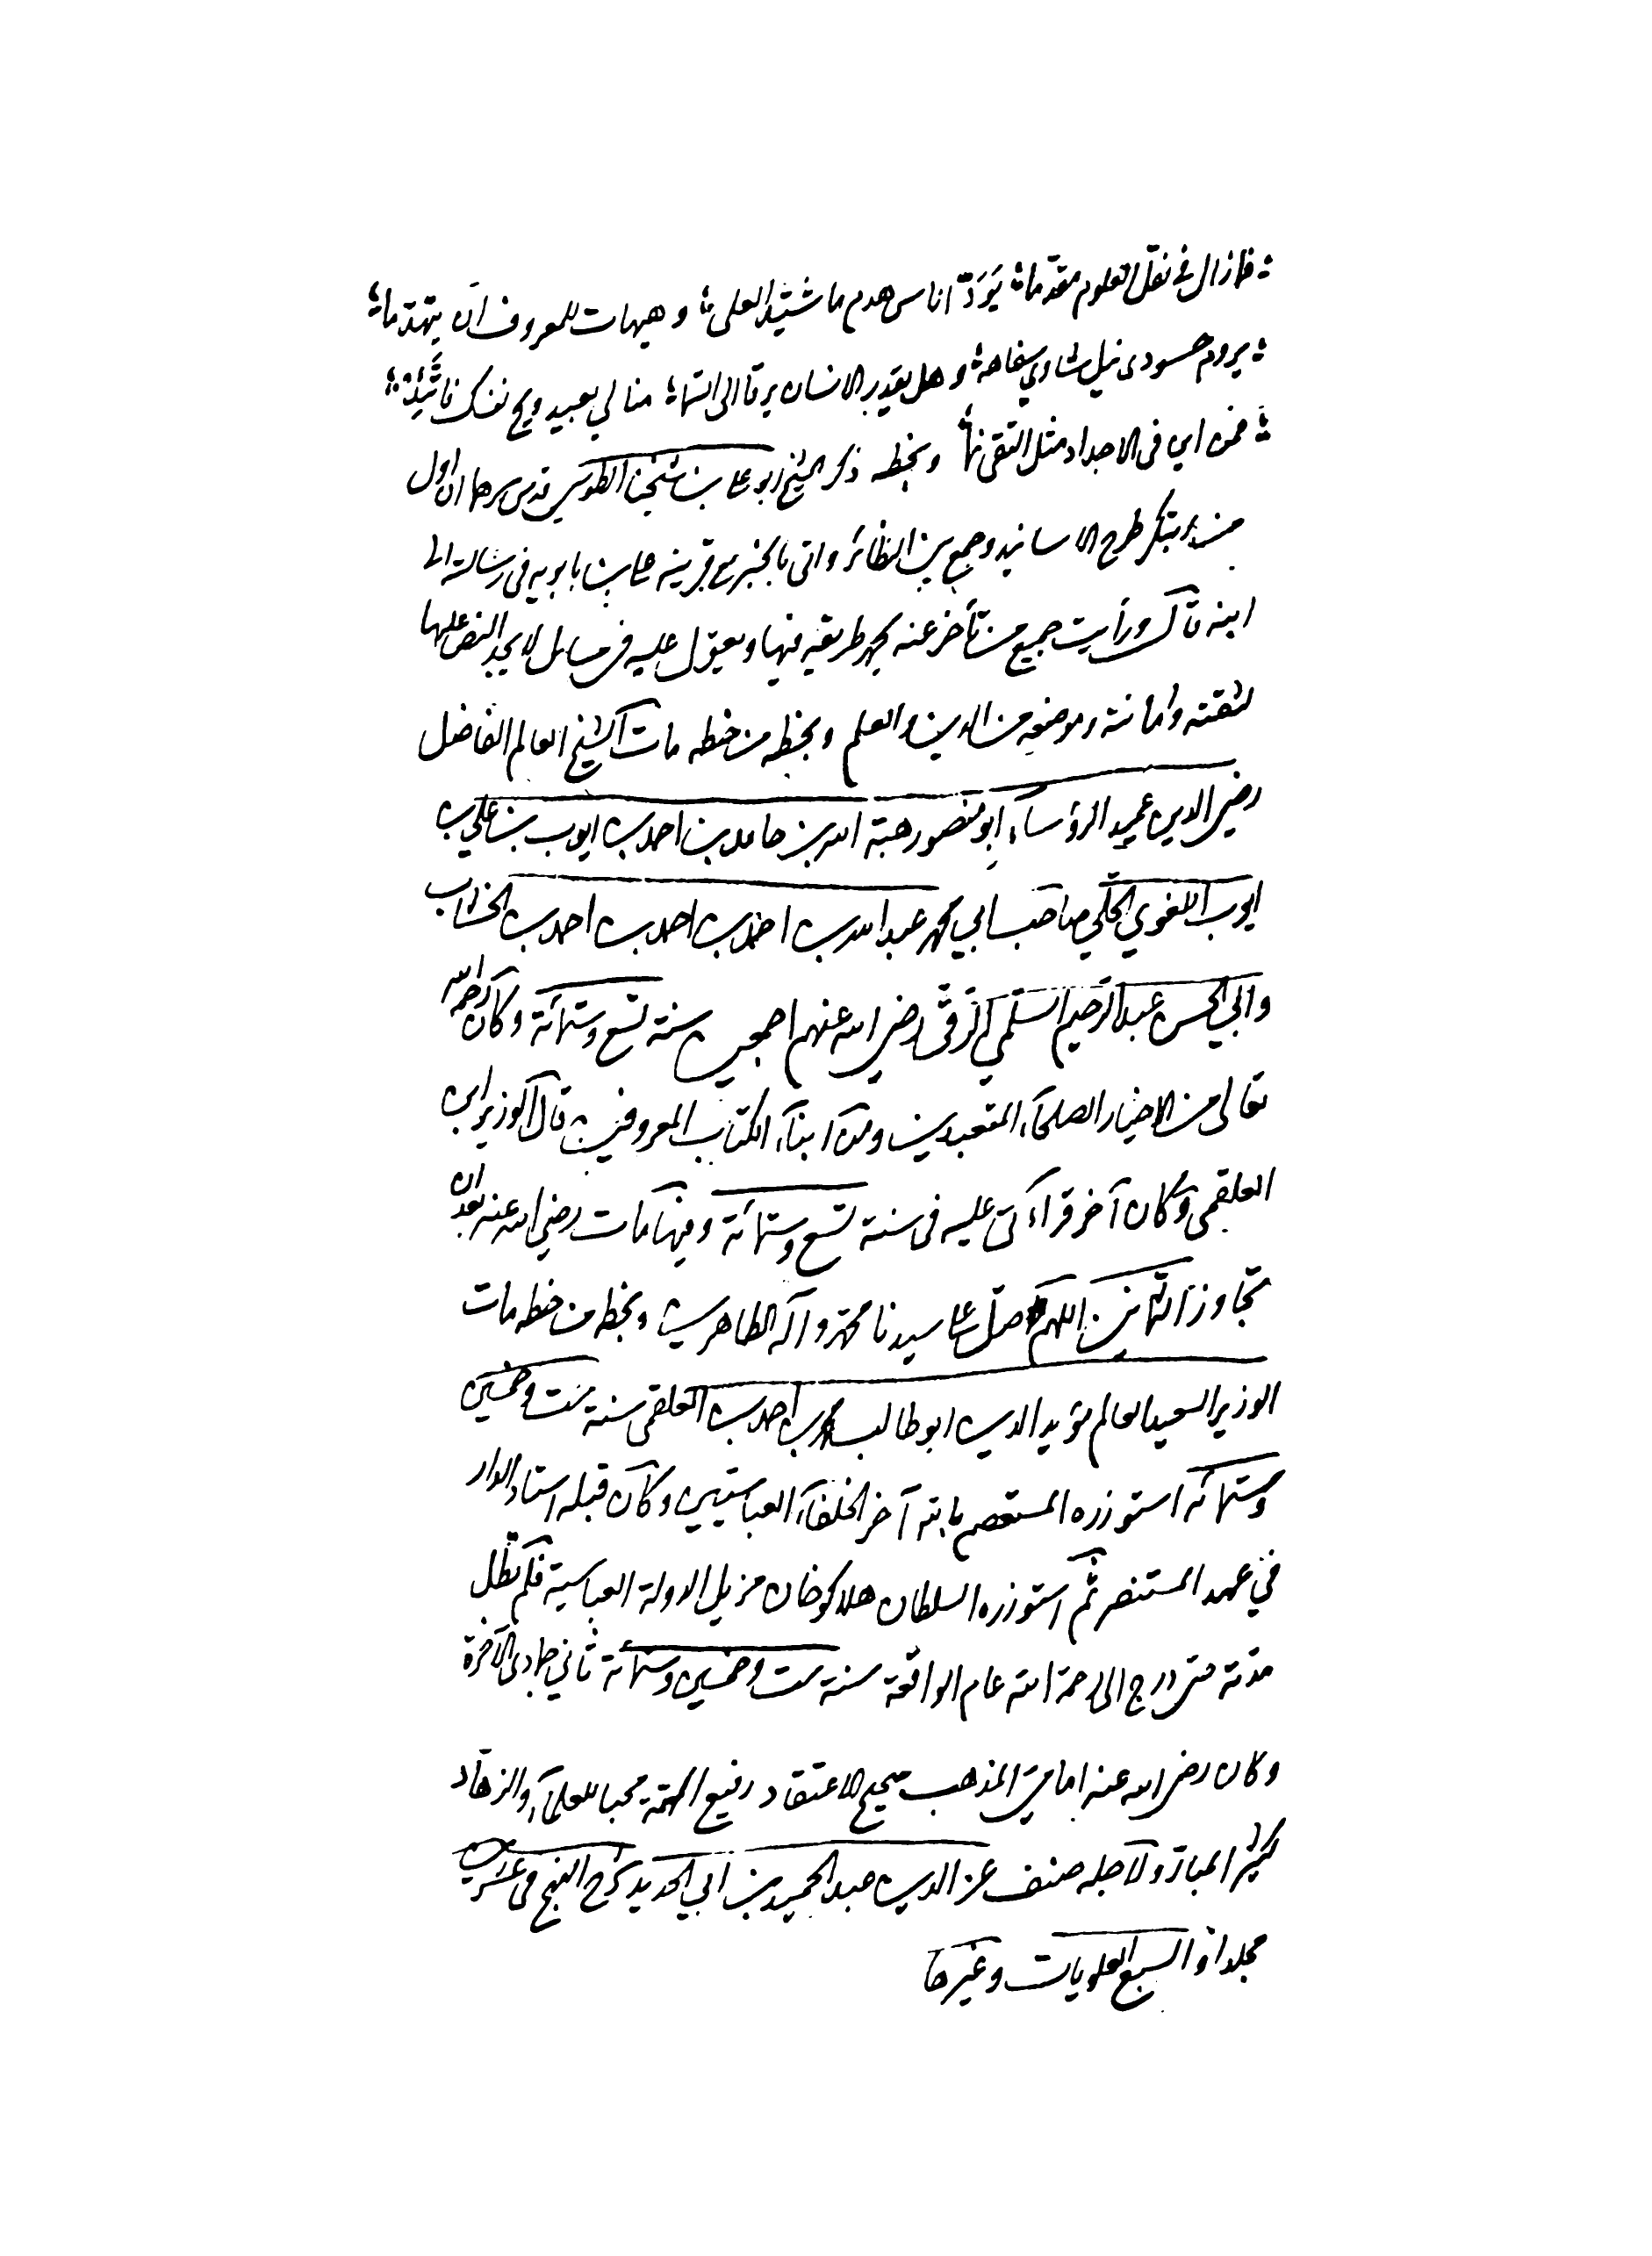 فما زال في نقل العلوم مقدّما يَوَدّ اناس هدم ما شيّد العلى وهيهات للمعروف ان يتهدّما
يروم حسودى نيل شاوي سفاهة وهل يقدر الانسان يرقا الى السما منالي بعيد ويح نفسك فاتّئد
فمن اين فى الاجداد مثل التقى نما وبخطه ذكر الشيخ ابو علي بن شيخنا الطوسي قدس سرهما ان اول
من ابتكر طرح الاسانيد وجمع بين النظائر واتى بالخبر مع قرينه علي بن بابويه فى رسالته الى
ابنه قال ورأيت جميع من تأخر عنه يحمد طريقه فيها ويعوّل عليه فى مسائل لا يجد النص عليها
لثقته وامانته وموضعه من الدين والعلم وبخطه من خطه مات الشيخ العالم الفاضل
رضي الدين عميد الرؤساء ابو منصور هبة الله بن حامد بن احمد بن ايوب بن علي بن
ايوب اللغوي الحلّي صاحب ابي محمد عبد الله بن احمد بن احمد بن احمد بن الخشاب
وابي الحسن عبد الرحيم السلمي الرقي رضي الله عنهم اجمعين سنة تسع وستمائة وكان رحمه الله
تعالى من الاخيار الصلحاء المتعبدين ومن ابناء الكتاب المعروفين قال الوزير ابن
العلقمى وكان آخر قراءتى عليه فى سنة تسع وستمائة وفيها مات رضي الله عنه بعد ان
تجاوز الثمانين اللهم صلّ على سيدنا محمد وآله الطاهرين وبخطه من خطه مات
الوزير السعيد العالم مؤيد الدين ابو طالب محمد بن احمد بن العلقمى سنة ست وخمسين
وستمائه استوزره المستعصم بالله آخر الخلفاء العباسيين وكان قبله استاد الدار
في عهد المستنصر ثم استوزره السلطان هلاكو خان مزيل الدولة العباسية فلم تطل
مدته حتى درج الى رحمة الله عام الواقعة سنة ست وخمسين وستمائة ثاني جمادى الآخرة
وكان رضي الله عنه امامي المذهب صحيح الاعتقاد رفيع الهمة محبا للعلماء والزهاد
كثير المبار ولاجله صنف عز الدين عبد الحميد بن ابي الحديد شرح النهج فى عشرين
مجلدا والسبع العلويات وغيرها